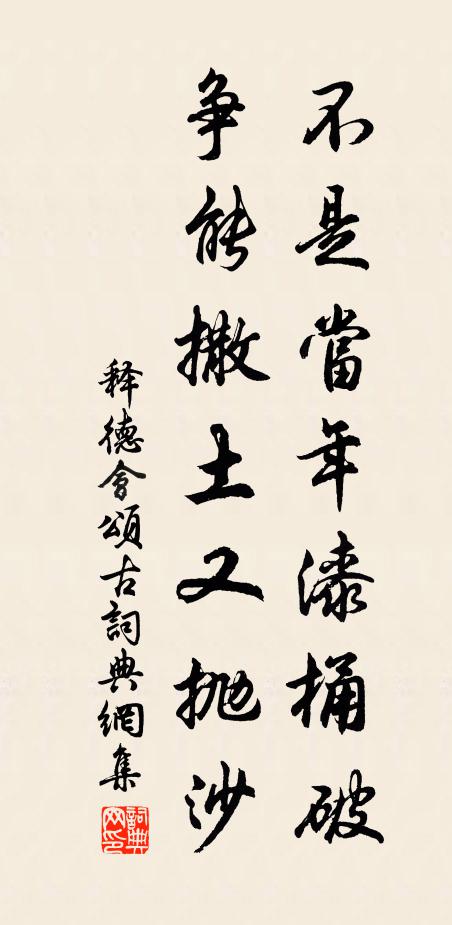 不是當年漆桶破
争能撒土又抛沙
释德會頌古詞典網集
詞典网印